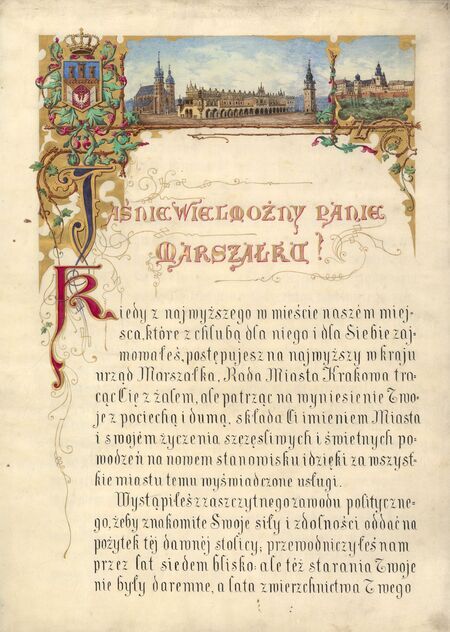 JAŚNIE WIELMOŻNY PANIE
MARSZAŁKU!
Kiedy z najwyższego w mieście naszém miej-
sca, które z chlubą dla niego i dla Siebie zaj-
mowałeś, postępujesz na najwyższy w kraju
urząd Marszałka, Rada Miasta Krakowa tra-
cąc Cię z żalem, ale patrząc na wyniesienie Two-
je z pociechą i dumą, składa Ci imieniem Miasta
i swojém życzenia szczęśliwych i świetnych po-
wodzeń na nowem stanowisku i dzięki za wszyst-
kie miastu temu wyświadczone usługi.
Wystąpiłeś z zaszczytnego zawodu polityczne-
go, żeby znakomite Swoje siły i zdolności oddać na
pożytek téj dawnéj stolicy; przewodniczyłeś nam
przez lat siedem blisko: ale téż starania Twoje
nie były daremne, a lata zwierzchnictwa Twego